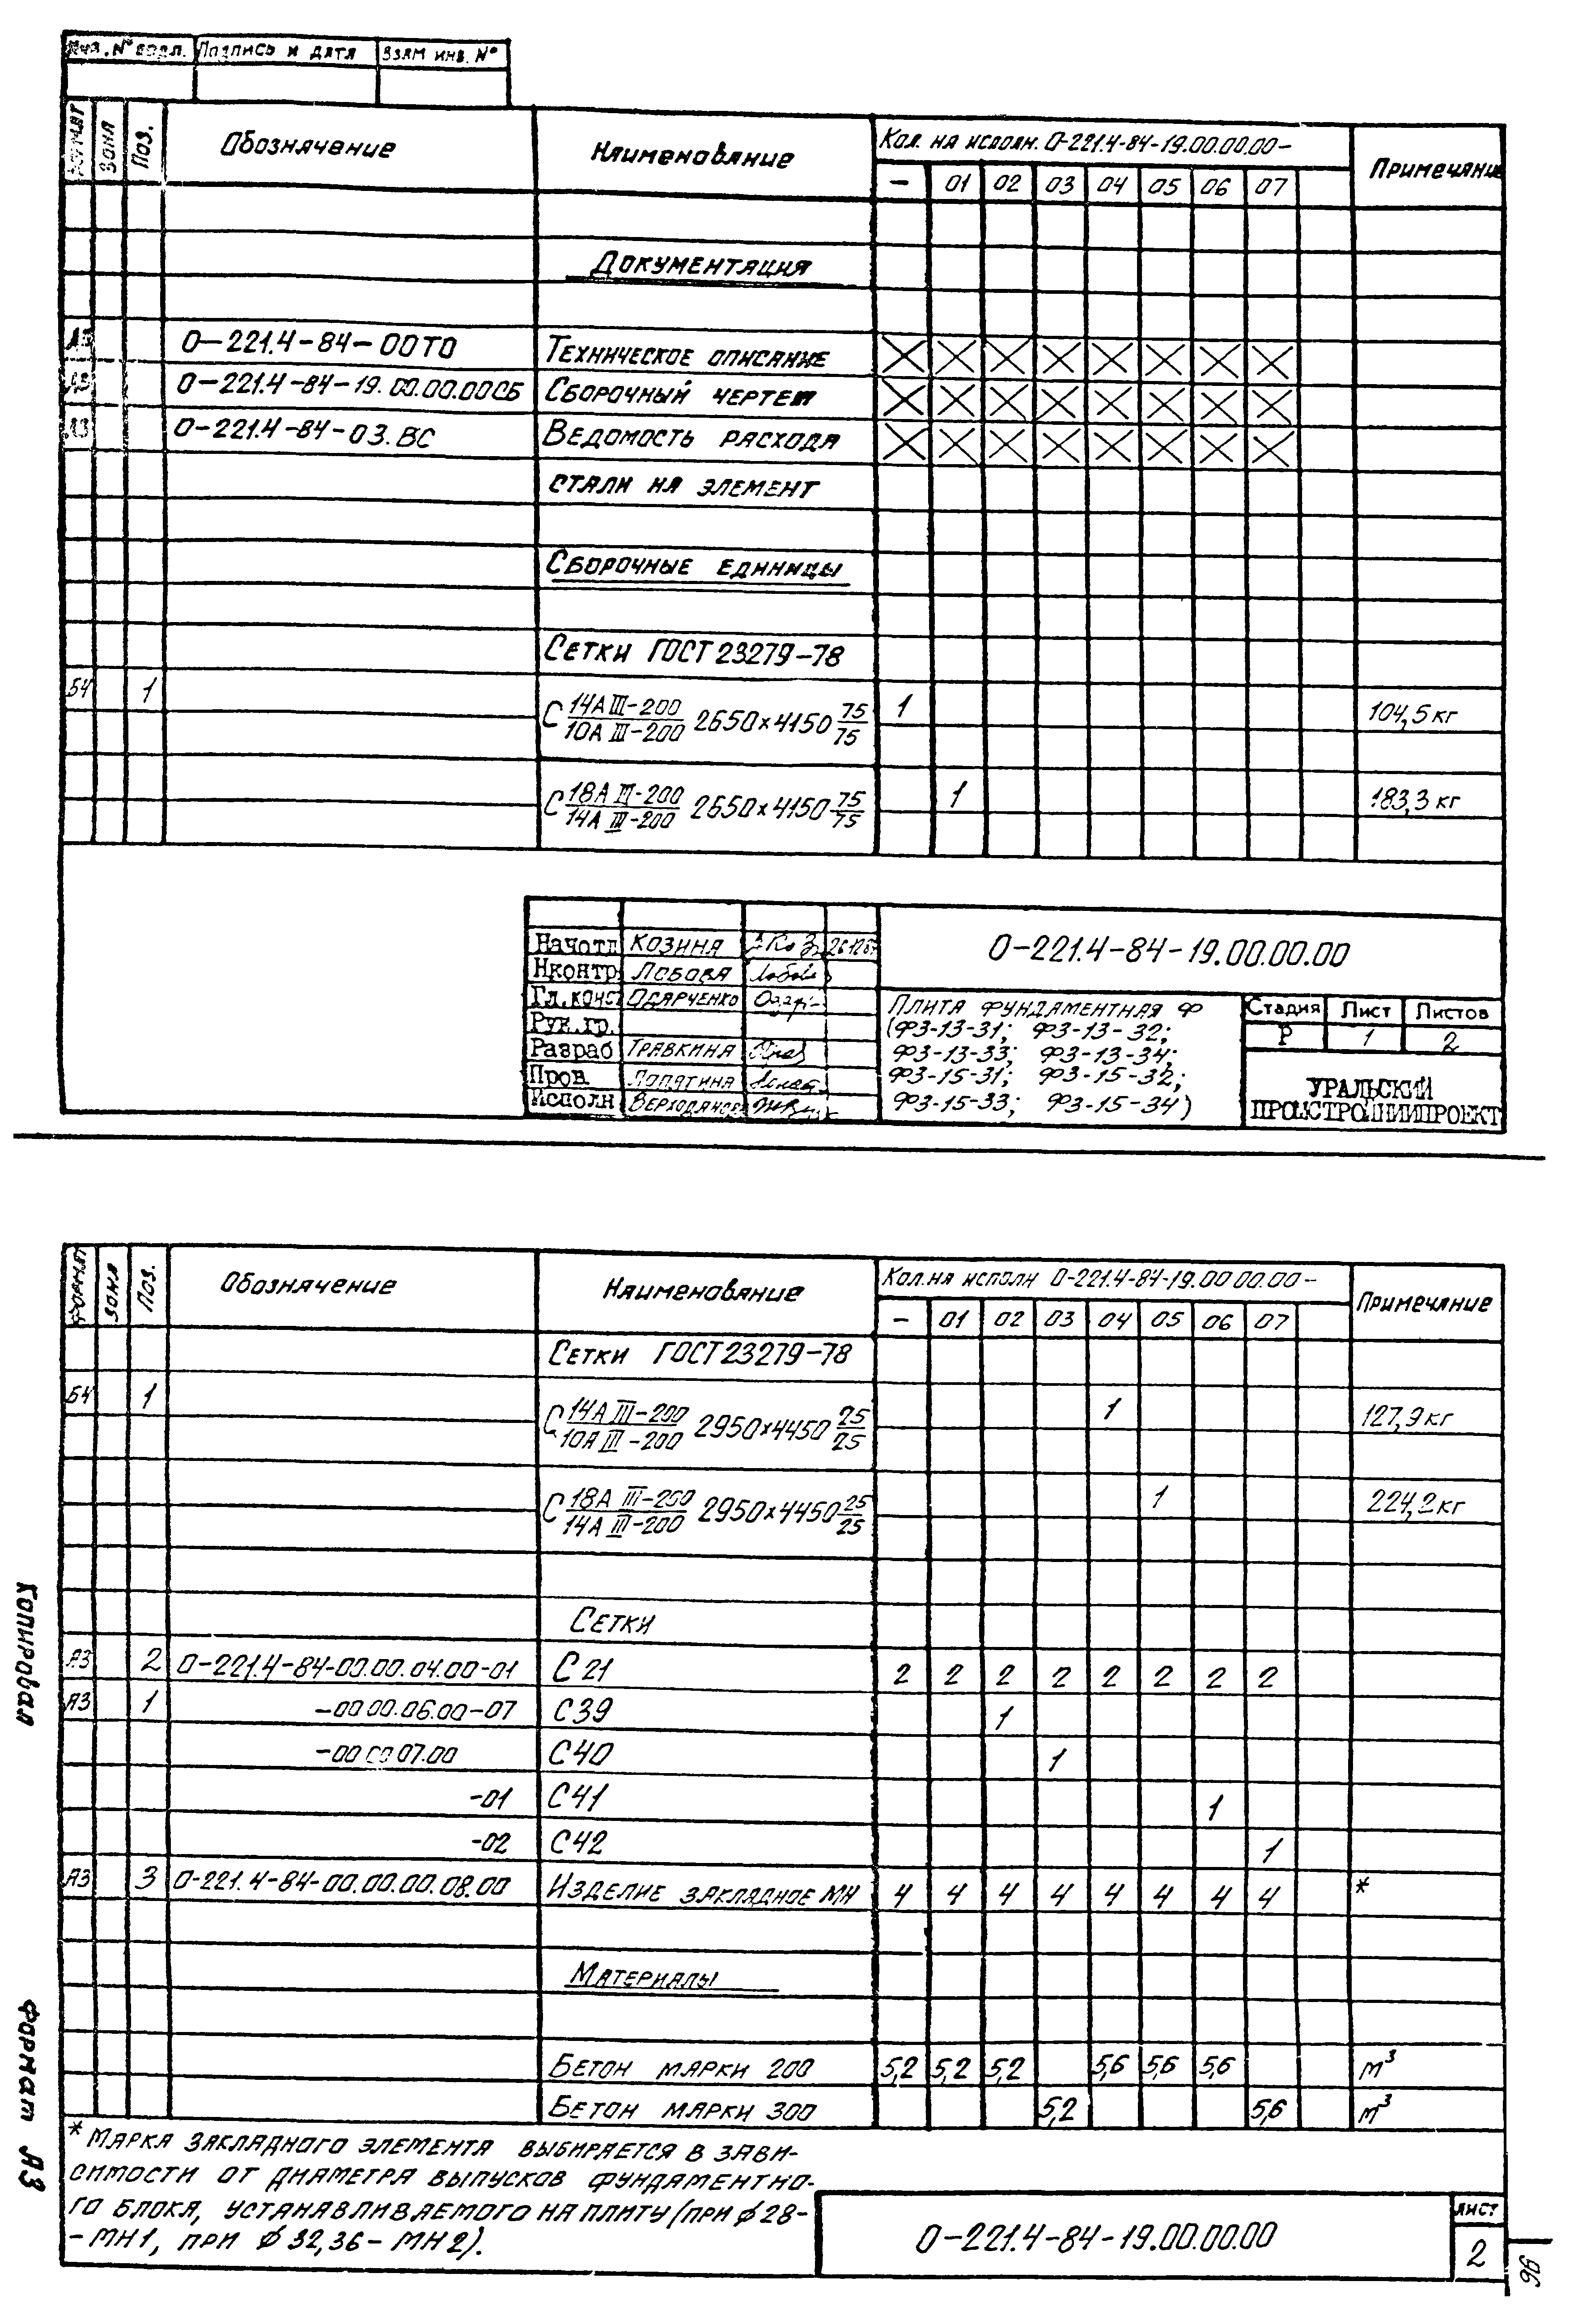 Инв. № подл. Подпись и дата Взам инв. №
Формат Зона Поз. Обозначение Наименование Кол. на исполн. 0-221.4-84-19.00.00.00- Примечание
- 01 02 03 04 05 06 07
Документация
А3 0-221.4-84-00ТО Техническое описание
А3 0-221.4-84-19.00.00.00СБ Сборочный чертеж
А3 0-221.4-84-03.ВС Ведомость расхода
стали на элемент
Сборочные единицы
Сетки ГОСТ 23279-78
Б4 1 С 14АIII-200/10АIII-200 2650×4150 75/75 1 104,5 кг
С 18АIII-200/14АIII-200 2650×4150 75/75 1 183,3 кг
Нач отд Козина 0-221.4-84-19.00.00.00
Н контр Лобова
Гл. конс Одарченко
Рук. гр.
Разраб Травкина
Пров Лопатина
Исполн
Плита фундаментная Ф
(Ф3-13-31; Ф3-13-32;
Ф3-13-33; Ф3-13-34;
Ф3-15-31; Ф3-15-32;
Ф3-15-33; Ф3-15-34)
Стадия Лист Листов
Р 1 2
УРАЛЬСКИЙ
ПРОМСТРОЙНИИПРОЕКТ
Формат Зона Поз. Обозначение Наименование Кол. на исполн 0-221.4-84-19.00.00.00- Примечание
- 01 02 03 04 05 06 07
Сетки ГОСТ 23279-78
Б4 1 С 14АIII-200/10АIII-200 2950×4450 25/25 1 127,9 кг
С 18АIII-200/14АIII-200 2950×4450 25/25 1 224,2 кг
Сетки
А3 2 0-221.4-84-00.00.04.00-01 С21 2 2 2 2 2 2 2 2
А3 1 -00.00.06.00-07 С39 1
-00.00.07.00 С40 1
-01 С41 1
-02 С42 1
А3 3 0-221.4-84-00.00.00.08.00 Изделие закладное МН 4 4 4 4 4 4 4 4 *
Материалы
Бетон марки 200 5,2 5,2 5,2 5,6 5,6 5,6 м³
Бетон марки 300 5,2 5,6 м³
* Марка закладного элемента выбирается в зави-
симости от диаметра выпусков фундаментно-
го блока, устанавливаемого на плиту (при ϕ28-
- МН1, при ϕ32,36 - МН2).
0-221.4-84-19.00.00.00
Лист
2
96
Копировал
Формат А3